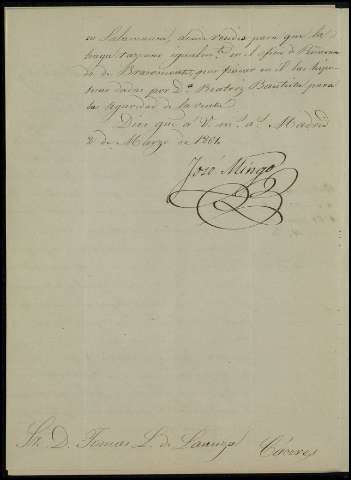 en Salamanca, donde reside para que la
tenga razonar igualmte en el oficio de Peñaran
da de Bracamonte, por fincar en él las hipo-
tecas dadas por Dª Beatriz Bautista para
la seguridad de la renta.
Dios gue a V. ms. as. Madrid
2 de Marzo de 1861.
José Mingo
Sr. D. Tomas L. de Lacuza Cáceres